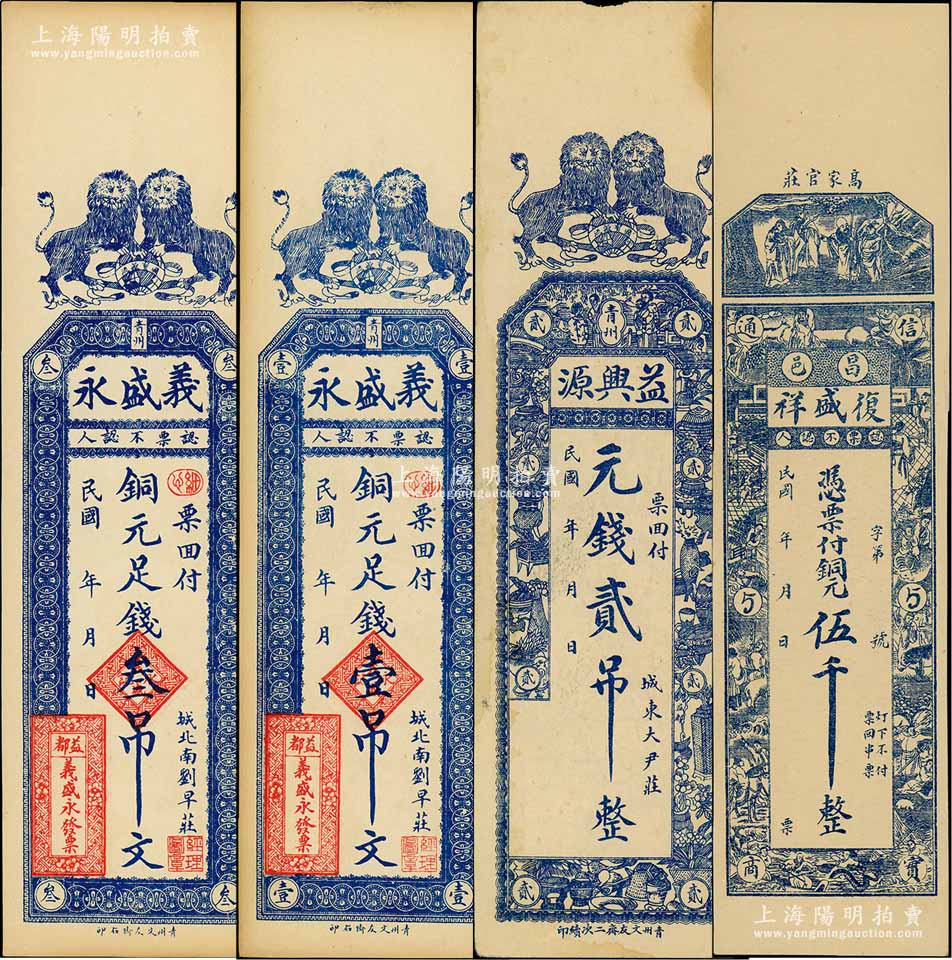 上海陽明拍賣
www.yangmingauction.com
青州
叁
叁
義盛永
認票不認人
票回付
銅元足錢叁吊文
民國 年 月 日
城北南劉早莊
益都
義盛永發票
經理
叁
叁
青州文友齋石印
青州
壹
壹
義盛永
認票不認人
票回付
銅元足錢壹吊文
民國 年 月 日
城北南劉早莊
益都
義盛永發票
經理
壹
壹
青州文友齋石印
貳
青州
貳
益興源
票回付
元錢貳吊整
民國 年 月 日
城東大尹莊
貳
貳
貳
貳
貳
貳
青州文友齋二次續印
高家官莊
信
通
昌邑
復盛祥
認票不認人
字第 號
憑票付銅元伍千整
民國 年 月 日 票
打下不付
票回串票
寶
商
上海陽明拍賣
www.yangmingauction.com
上海陽明拍賣
www.yangmingauction.com